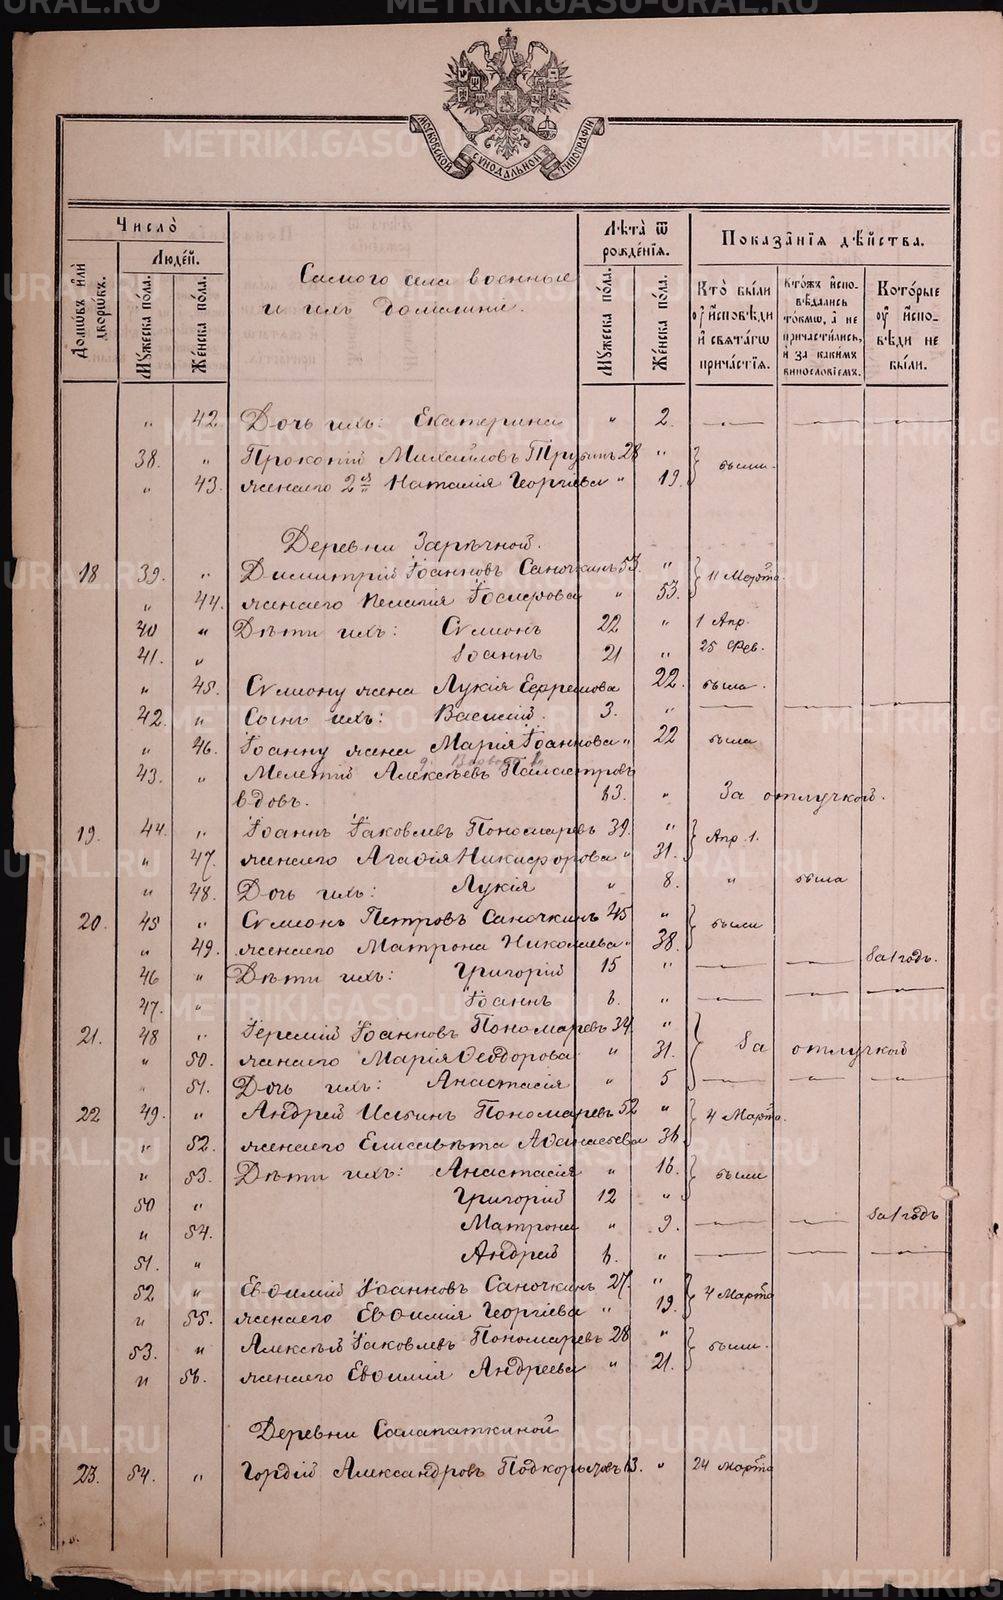 METRIKI.GASO-URAL.RU
МОСКОВСКОЙ СѴНОДАЛЬНОЙ ТИПОГРАФІИ
Число̀
Людéй.
Домѡвъ и҆лѝ дворѡвъ.
Мꙋ́жеска по́ла.
Же́нска по́ла.
Самого села военные
и ихъ домашніе.
Лѣ́та ѿ рожде́нїѧ.
Мꙋ́жеска по́ла.
Же́нска по́ла.
Показа̑нїѧ дѣ́йства.
Кто̀ бы́ли ᲂу҆ и҆́сповѣди и҆ свѧта́гѡ прича́стїѧ.
Кто́жъ и҆спо- вѣ́дались то́кмѡ, а҆ не причасти́лись, и҆ за каки́мъ виносло́вїемъ.
Кото́рые ᲂу҆ и҆́спо- вѣди не бы́ли.
" 42. Дочь ихъ: Екатерина " 2.
38. " Прокопій Михайловъ Трубинъ 28 "
" 43. жена его 2й Наталія Георгіева " 19. были.
Деревни Зарѣчной.
18 39. " Димитрій Іоанновъ Саночкинъ 53. " 11 Марта.
" 44. жена его Пелагія " 53.
40 " Дѣти ихъ: Сѵмеонъ 22 " 1 Апр.
41. " Іоаннъ 21 " 25 Фев.
" 45. Сѵмеону жена Лукія Ефремова 22. была.
42. " Сынъ ихъ: Василій. 3. "
" 46. Іоанну жена Марія Іоаннова " 22 была
43. " Мелетій Алексѣевъ
вдовъ. 63. " За отлучкой.
19. 44. " Іоаннъ Іаковлевъ Пономаревъ 39. " Апр. 1.
" 47. жена его Агафія Никифорова " 31.
" 48. Дочь ихъ: Лукія " 8. " была
20. 45 " Сѵмеонъ Петровъ Саночкинъ 45 " были
" 49. жена его Матрона Николаева " 38.
46 " Дѣти ихъ: Григорій 15 " За 1 годъ.
47. " Іоаннъ 6. "
21. 48 " Іеремій Іоанновъ Пономаревъ 34. " За отлучкой
" 50. жена его Марія Ѳеодорова " 31.
" 51. Дочь ихъ: Анастасія " 5
22 49. " Андрей Ильинъ Пономаревъ 52 " 4 Марта.
" 52. жена его Елисавѣта Аѳанасьева 36.
" 53. Дѣти ихъ: Анастасія " 16. были
50 " Григорій 12 "
" 54. Матрона " 9. За 1 годъ
51. " Андрей 6. "
52 " Евѳимій Іоанновъ Саночкинъ 27. " 4 Марта
" 55. жена его Евѳимія Георгіева " 19.
53. " Алексѣй Іаковлевъ Пономаревъ 28 " были.
" 56. жена его Евѳимія Андреева " 21.
Деревни Салапаткиной
23. 54. " Гордій Александровъ Подкорытовъ 63. " 24 Марта